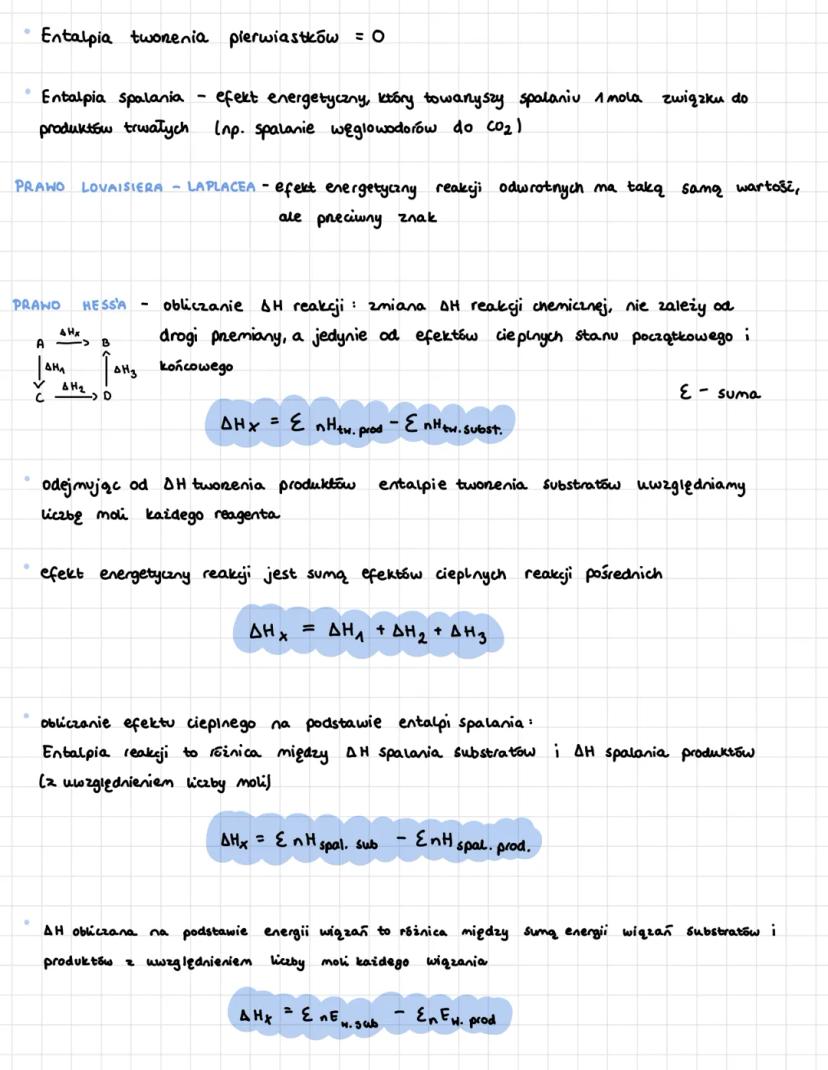 • Entalpia tworzenia pierwiastków = 0
• Entalpia spalania - efekt energetyczny, który towarzyszy spalaniu 1 mola związku do
produktów trwałych (np. spalanie węglowodorów do CO₂)
PRAWO LOVAISIERA - LAPLACEA - efekt energetyczny reakcji odwrotnych ma taką samą wartość,
ale przeciwny znak
PRAWO HESS'A - obliczanie ΔH reakcji : zmiana ΔH reakcji chemicznej, nie zależy od
drogi przemiany, a jedynie od efektów cieplnych stanu początkowego i
końcowego
A ΔHx → B
↓ ΔH₁ ↑ ΔH₃
C ΔH₂ → D
Ɛ - suma
ΔHx = Ɛ nH tw. prod - Ɛ nH tw. subst.
• odejmując od ΔH tworzenia produktów entalpie tworzenia substratów uwzględniamy
liczbę moli każdego reagenta
• efekt energetyczny reakcji jest sumą efektów cieplnych reakcji pośrednich
ΔHx = ΔH₁ + ΔH₂ + ΔH₃
• obliczanie efektu cieplnego na podstawie entalpi spalania :
Entalpia reakcji to różnica między ΔH spalania substratów i ΔH spalania produktów
(z uwzględnieniem liczby moli)
ΔHx = Ɛ nH spal. sub - Ɛ nH spal. prod.
• ΔH obliczana na podstawie energii wiązań to różnica między sumą energii wiązań substratów i
produktów z uwzględnieniem liczby moli każdego wiązania
ΔHx = Ɛ nE w. sub - Ɛ nE w. prod